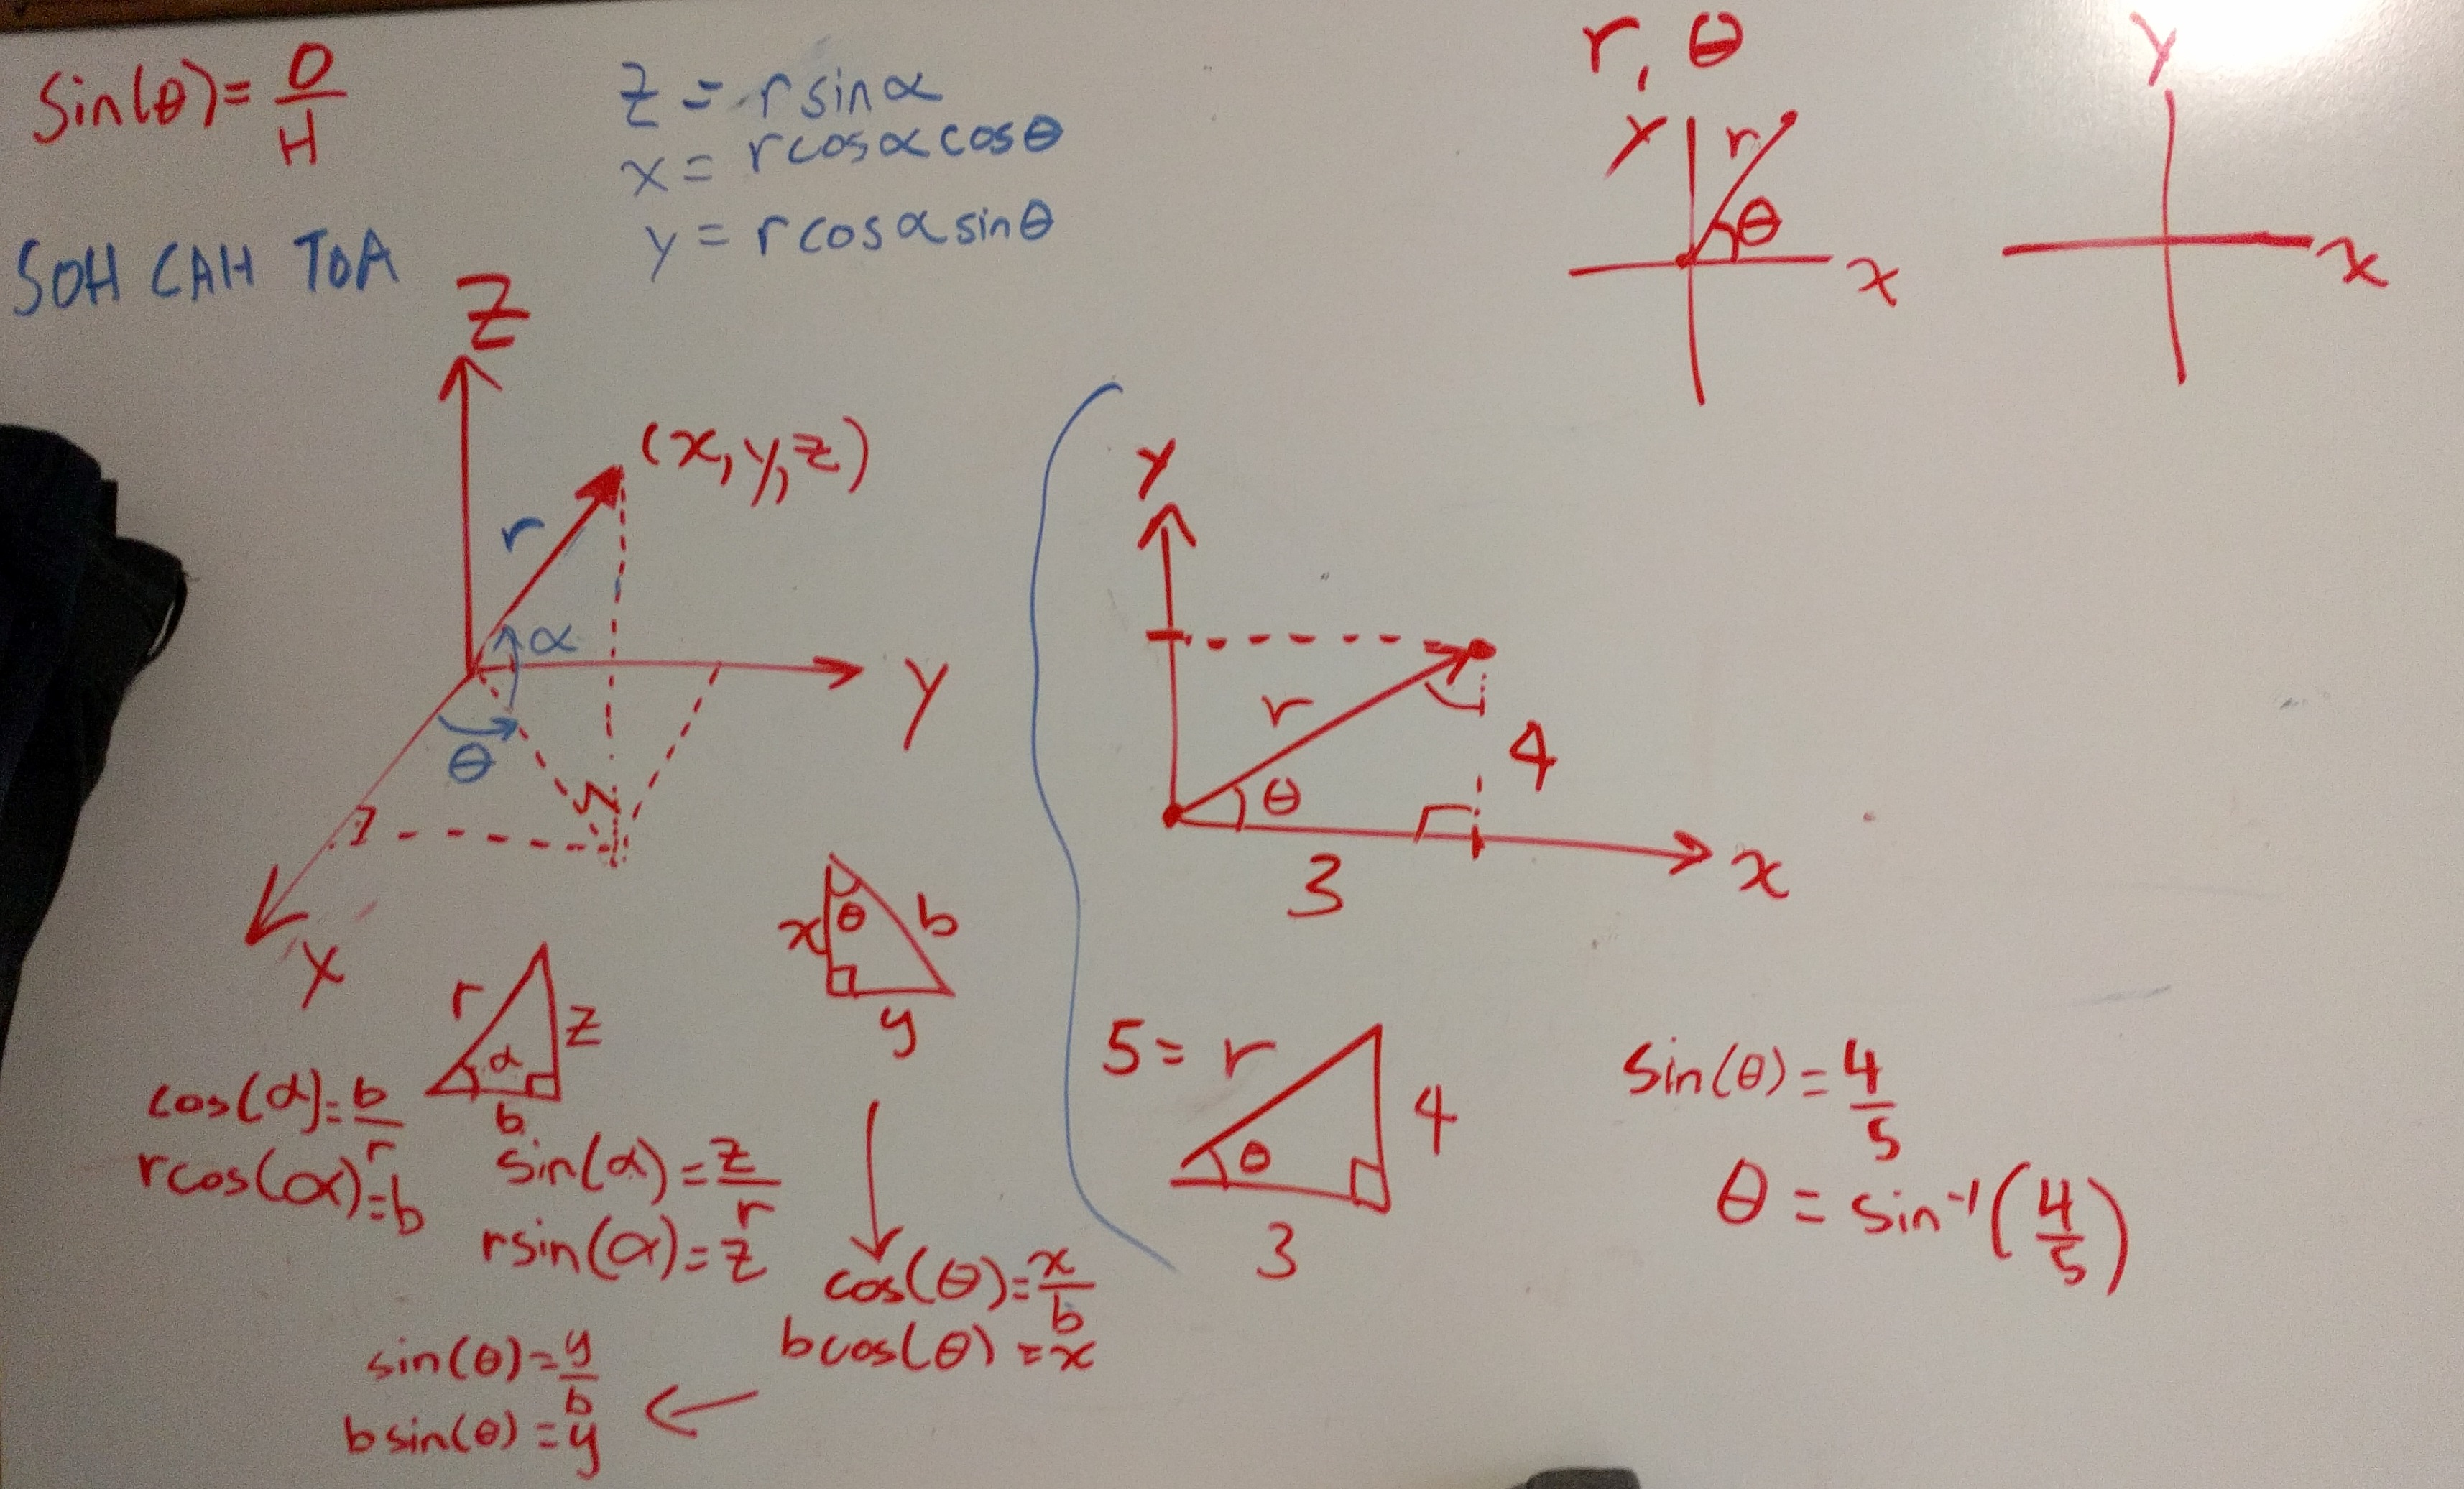 sin(θ) = O/H
SOH CAH TOA
z = r sin α
x = r cos α cos θ
y = r cos α sin θ
r, θ
Y
r
θ
x
Y
x
Z
(x, y, z)
r
α
y
θ
x
r
z
α
b
cos(α) = b/r
r cos(α) = b
sin(α) = z/r
r sin(α) = z
x
θ
b
y
cos(θ) = x/b
b cos(θ) = x
sin(θ) = y/b
b sin(θ) = y
Y
r
4
θ
3
x
5 = r
4
θ
3
sin(θ) = 4/5
θ = sin⁻¹(4/5)